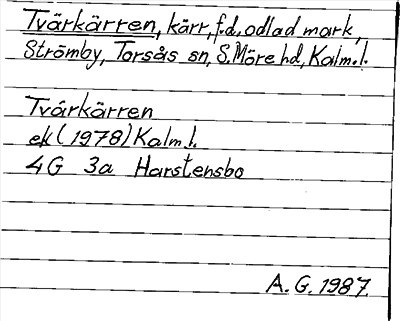 Tvärkärren, kärr, f.d. odlad mark,
Strömby, Torsås sn, S. Möre hd, Kalm. l.
Tvärkärren
ek (1978) Kalm. l.
4G 3a Harstensbo
A. G. 1987.